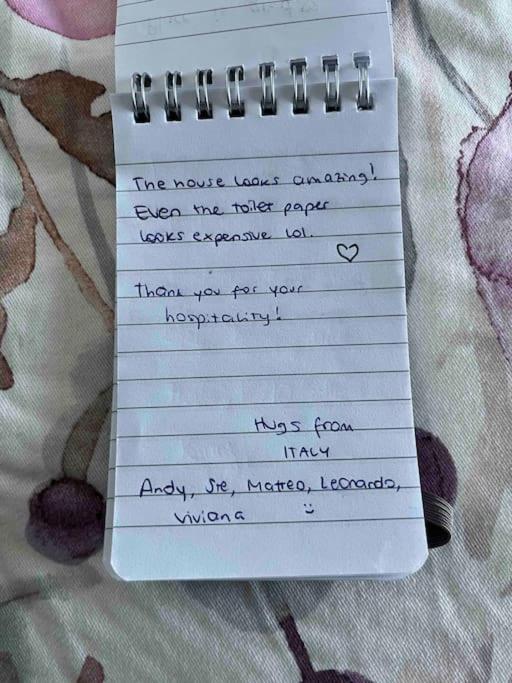 The house looks amazing!
Even the toilet paper
looks expensive lol.
♡
Thank you for your
hospitality!
Hugs from
ITALY
Andy, Ste, Matteo, Leonardo,
Viviana :)